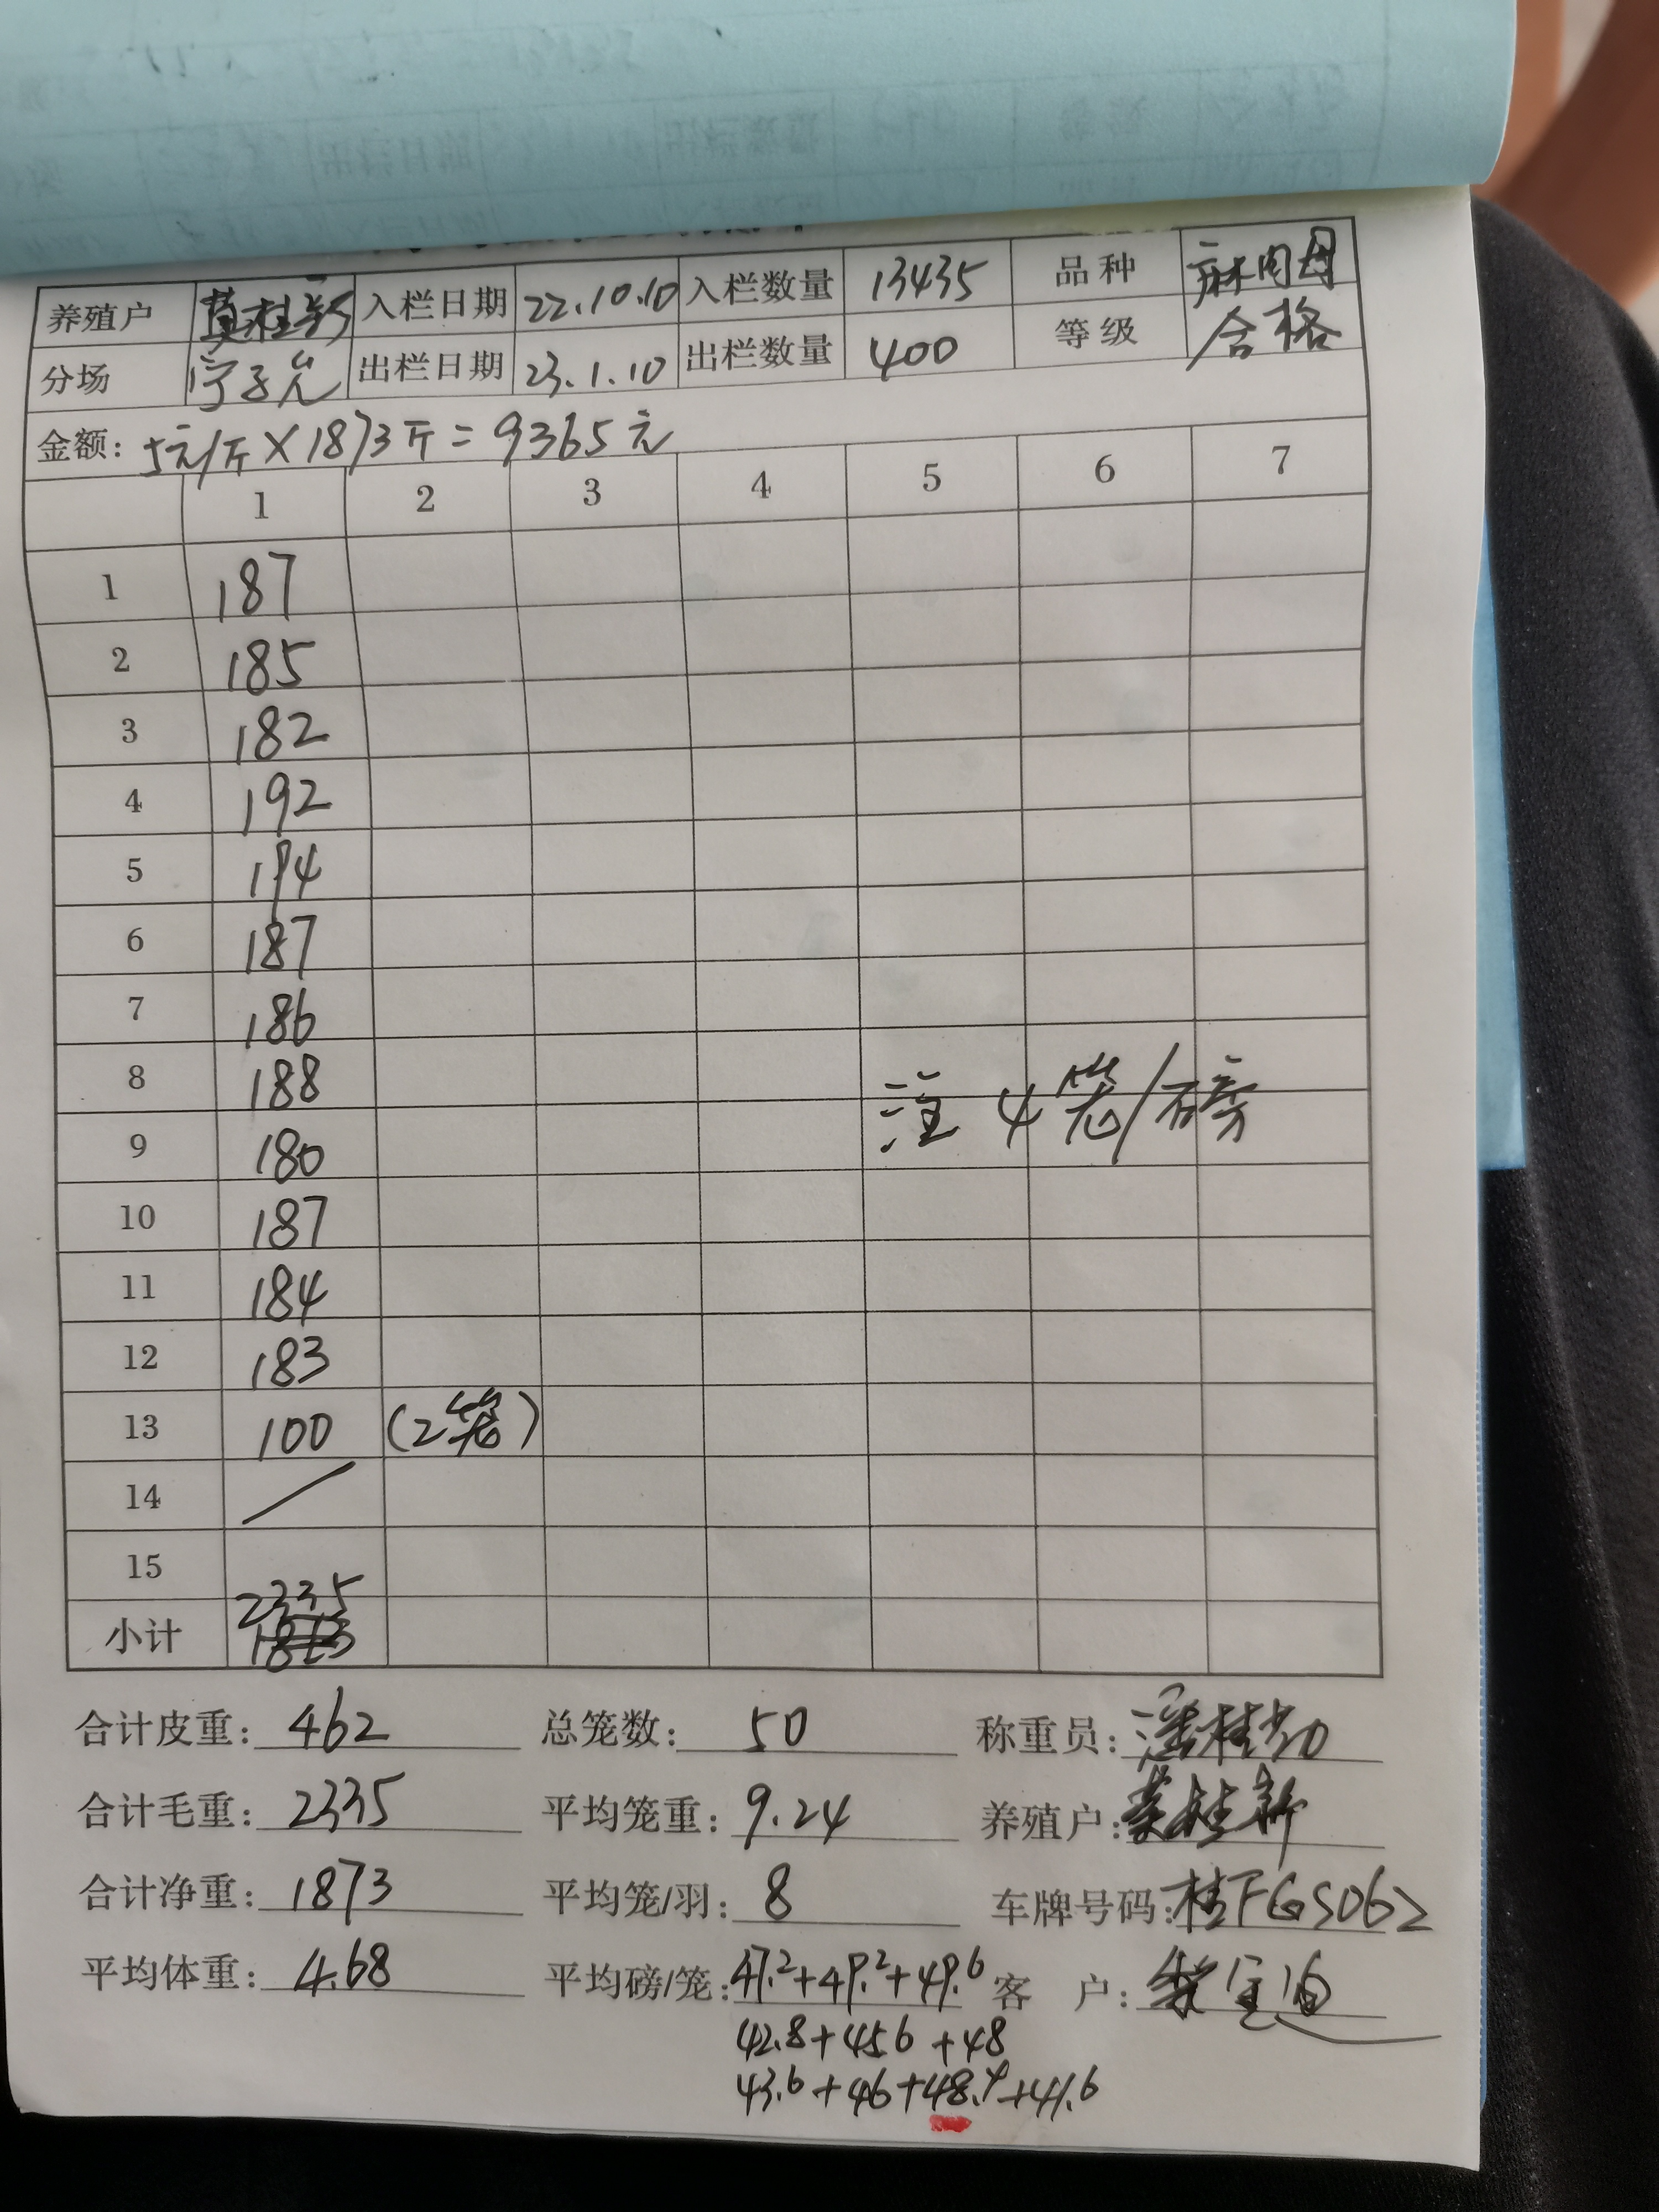 养殖户 入栏日期 22.10.10 入栏数量 13435 品种 麻肉母
分场 出栏日期 23.1.10 出栏数量 400 等级 合格
金额: 5元/斤×1873斤=9365元
1 2 3 4 5 6 7
1 187
2 185
3 182
4 192
5 194
6 187
7 186
8 188
注 4笼/磅
9 180
10 187
11 184
12 183
13 100 (2笼)
14 /
15
小计 2335
合计皮重: 462 总笼数: 50 称重员:
合计毛重: 2335 平均笼重: 9.24 养殖户:
合计净重: 1873 平均笼/羽: 8 车牌号码: 桂FGS062
平均体重: 4.68 平均磅/笼: 47.2+49.2+49.6 客 户:
42.8+45.6+48
43.6+46+48.4+41.6